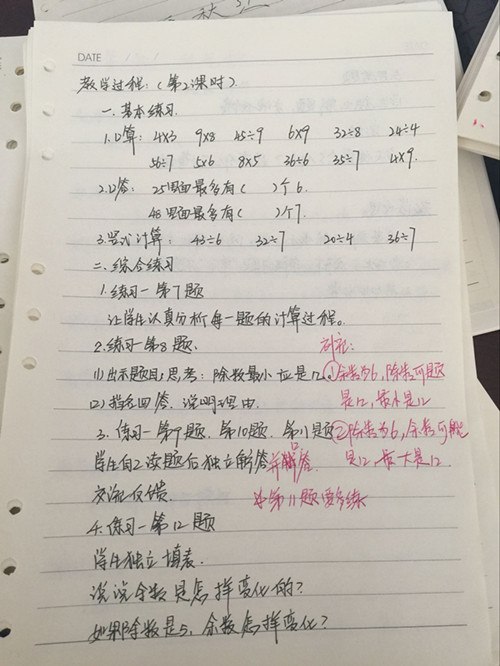 秋
DATE / /
DATE
教学过程:(第2课时)
一.基本练习.
1.口算: 4×3 9×8 45÷9 6×9 32÷8 24÷4
56÷7 5×6 8×5 36÷6 35÷7 4×9.
2.口答: 25里面最多有( )个6.
48里面最多有( )个7.
3.竖式计算: 43÷6 32÷7 20÷4 36÷7
二.综合练习
1.练习一第7题
让学生认真分析每一题的计算过程。
2.练习一第8题.
(1)出示题目,思考:除数最小应是几。
(2)指名回答.说明理由.
3.练习一第9题.第10题.第11题
学生自己读题后独立解答
交流反馈.
4.练习一第12题
学生独立填表.
说说余数是怎样变化的?
如果除数是5,余数怎样变化?
①余数为6,除数可能
是几,最小是几
②除数为6,余数可能
是几,最大是几.
第11题要多练